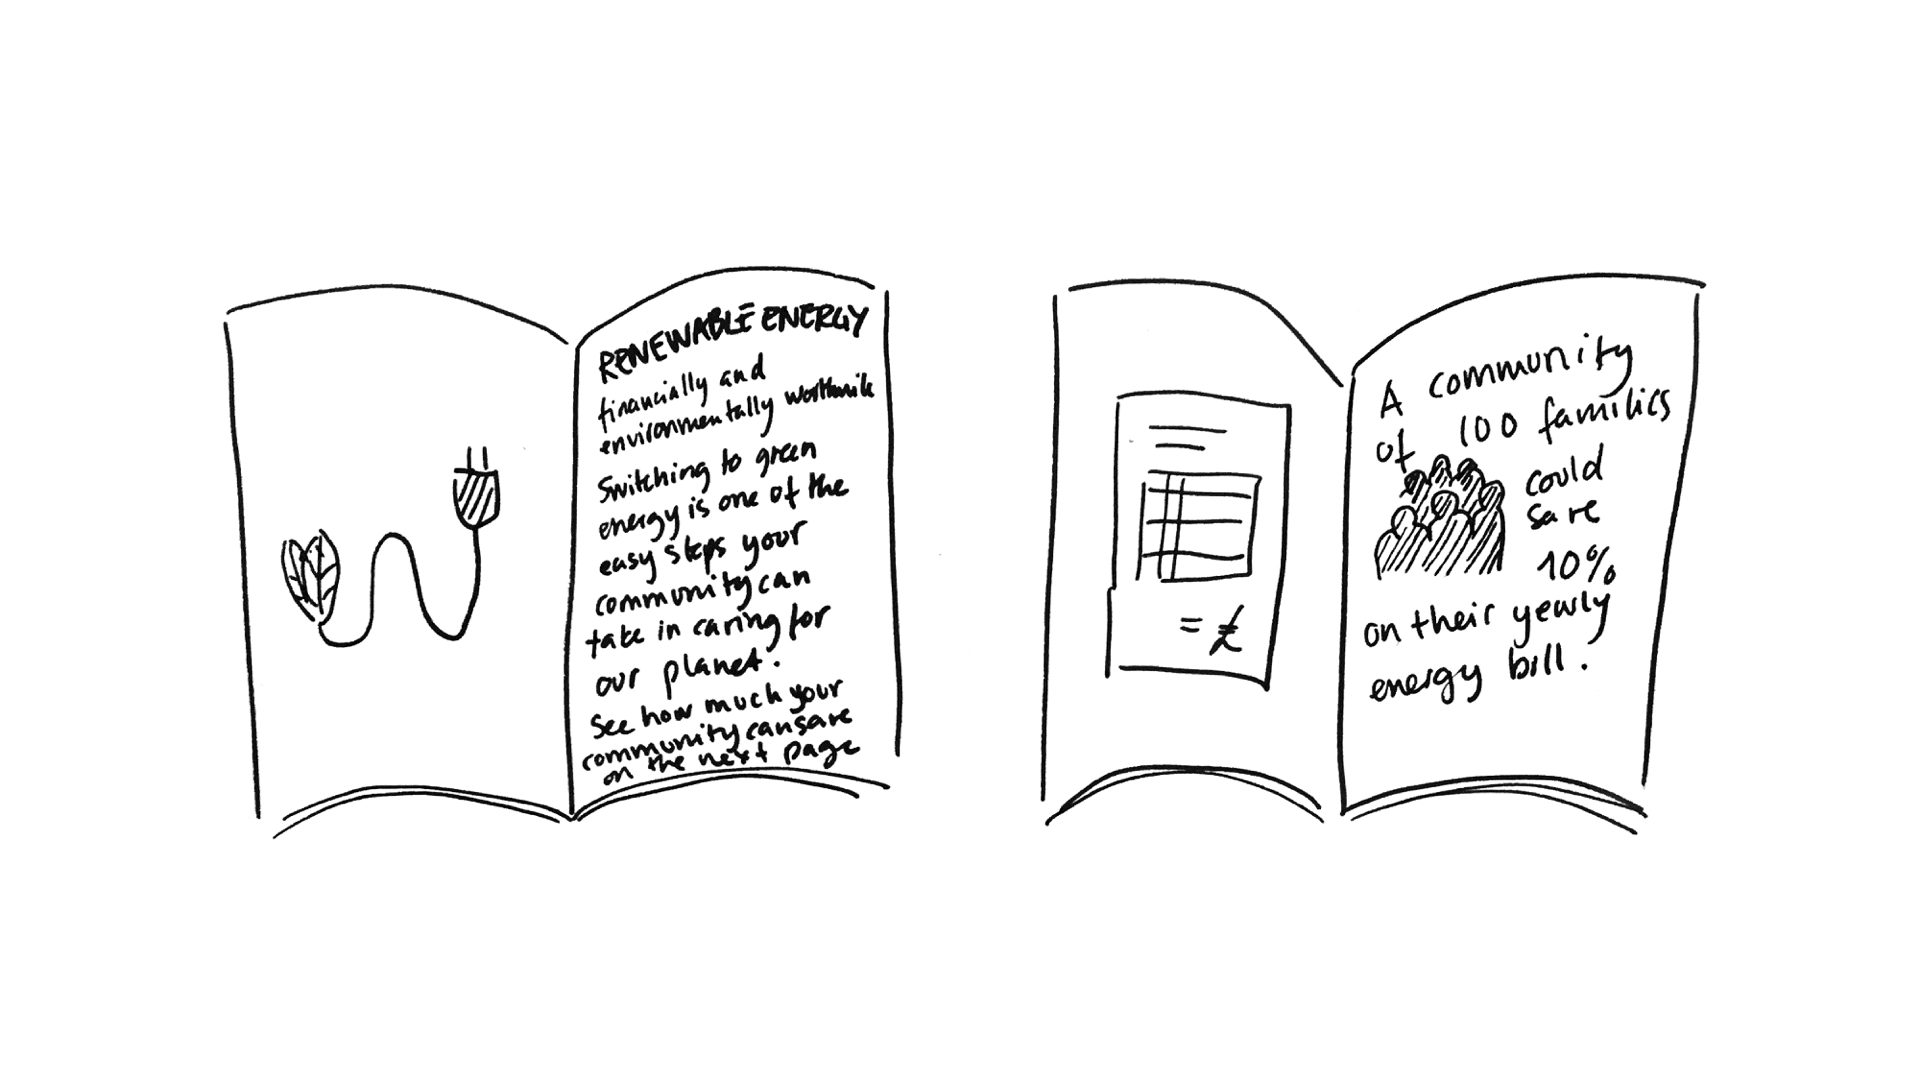 RENEWABLE ENERGY
financially and
environmentally worthwile
Switching to green
energy is one of the
easy steps your
community can
take in caring for
our planet.
See how much your
community can save
on the next page
= £
A community
of 100 families
could
save
10%
on their yearly
energy bill.